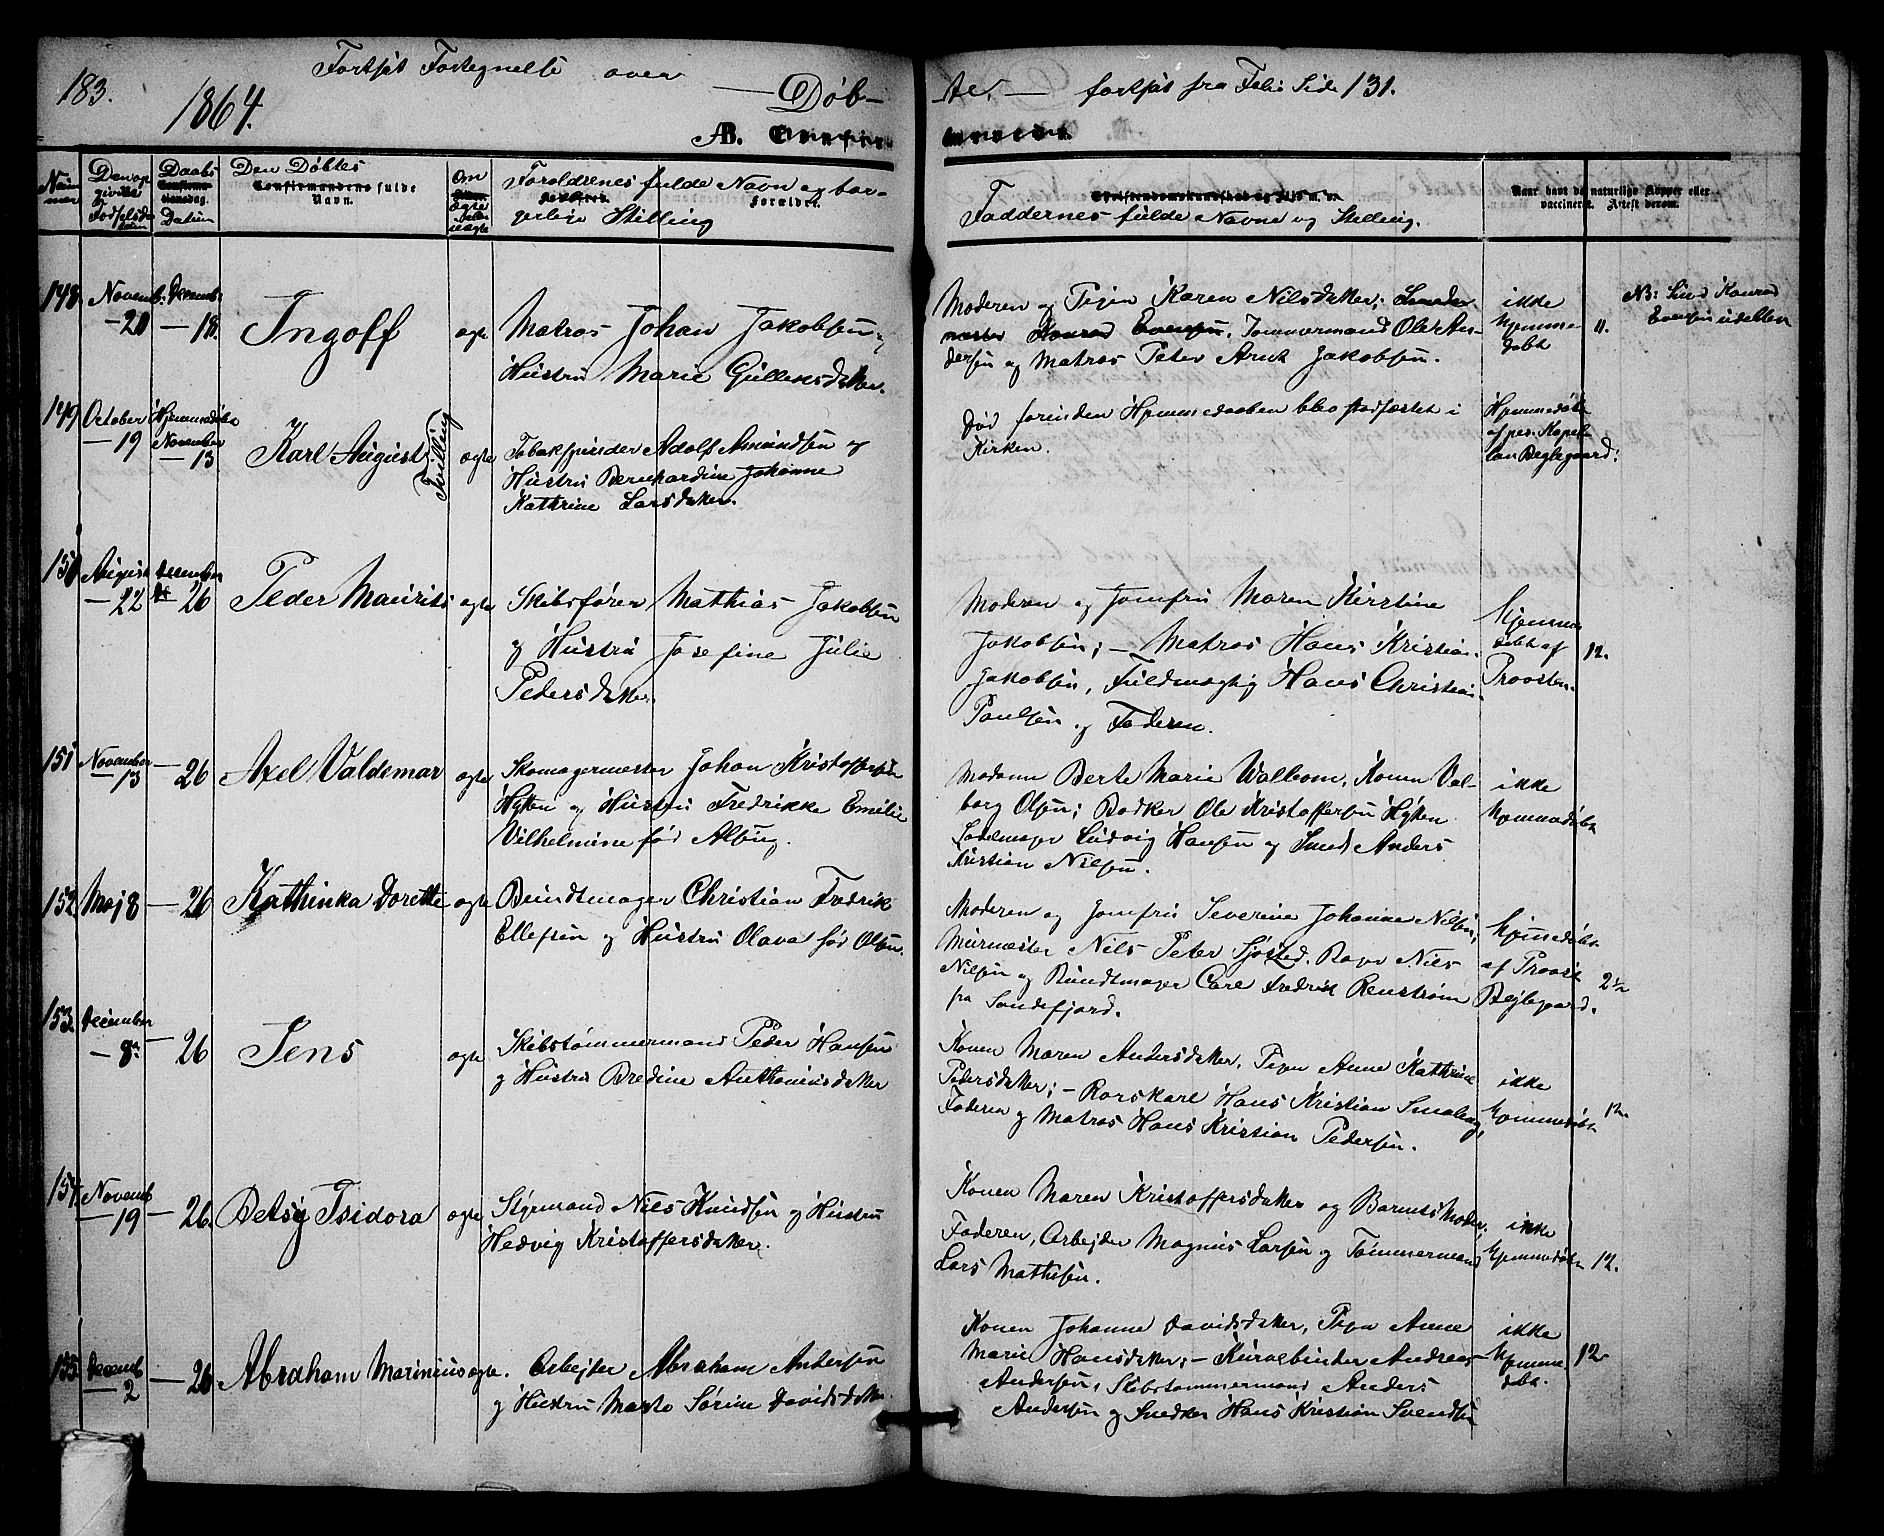 183.
1864.
Fortsat Fortegnelse over
—Døb-
te. — fortsat fra Folio Side 131.
B. Confir-
Num-
mer
Den op-
givelse
Fødselsda-
Daabs
Datum
Den Døbtes
Confirmandens fulde
Navn.
Om
ægte
uægte
Forældrenes fulde Navn og bor-
gerlige Stilling
Faddernes fulde Navne og Stilling.
Naar havt de naturlige Kopper eller
vaccineret. Attest derom.
148. Novemb. Decemb.
— 20 — 18. Ingolf ægte
Matros Johan Jakobsen
Hustru Marie Gullensdatter.
Moderen og Pigen Karen Nilsdatter; Smede-
mester Konrad Evensen, Tømmermand Ole An-
dersen og Matros Peter Arnt Jakobsen.
ikke
hjemme-
døbt
11.
NB: Smed Konrad
Evensen udebleven
149 October Hjemmedøbt
— 19 November
— 13 Karl August Tvilling ægte
Tobakspinder Adolf Amundsen og
Hustru Bernhardine Johanne
Kathrine Larsdatter.
Død forinden Hjemmedaaben blev stadfæstet i
Kirken.
Hjemmedøbt
af pers. Kapel-
lan Bejlegaard.
150 August December
— 22 26 Peder Maurits ægte
Skibsfører Mathias Jakobsen
og Hustru Josefine Julie
Pedersdatter.
Moderen og Jomfru Maren Kirstine
Jakobsen; — Matros Hans Kristian
Jakobsen, Fuldmægtig Hans Christian
Paulsen og Faderen.
Hjemme
døbt af
Provsten.
12.
151 November
— 13 — 26 Axel Valdemar ægte
Skomagermester Johan Kristoffersen
Hytten og Hustru Fredrikke Emilie
Vilhelmine fød Alsing.
Madame Berte Marie Walbom, Konen Val-
borg Olsen; Bødker Ole Kristoffersen Hytten
Sadelmager Ludvig Hansen og Smed Anders
Kristian Nilsen.
ikke
hjemmedøbt
152 Maj 8 — 26 Kathinka Dorette ægte
Bundtmager Christian Fredrik
Ellefsen og Hustru Olava fød Olsen.
Moderen og Jomfru Severine Johanne Nilsen;
Murmester Nils Peter Sjøsted, Nils
Nilsen og Bundtmager Carl Fredrik Renstrøm
fra Sandefjord.
Hjemmedøbt
af Provst
Bejlegaard.
2½
153. December
— 8de — 26 Jens ægte
Skibstømmermand Peder Hansen
og Hustru Bredine Anthoniusdatter
Konen Maren Andersdatter, Pigen Anne Kathrine
Pedersdatter; — Rorskarl Hans Kristian Smaleng,
Faderen og Matros Hans Kristian Pedersen.
ikke
hjemmedøbt
12.
154. Novemb
— 19 — 26. Betsy Isidora ægte
Styrmand Nils Knudsen og Hustru
Hedvig Kristoffersdatter.
Konen Maren Kristoffersdatter og Barnets Moder;
Faderen, Arbejder Magnus Larsen og Tømmermand
Lars Mathisen.
ikke
hjemmedøbt
12.
155. Decemb
— 2 — 26 Abraham Marinius ægte.
Arbejder Abraham Andersen
og Hustru Marte Sørine Davidsdatter
Konen Johanne Davidsdatter, Pigen Anne
Marie Hansdatter; — Kurvebinder Andreas
Andersen, Skibstømmermand Anders
Andersen og Snedker Hans Kristian Svendsen
ikke
hjemme-
døbt.
12